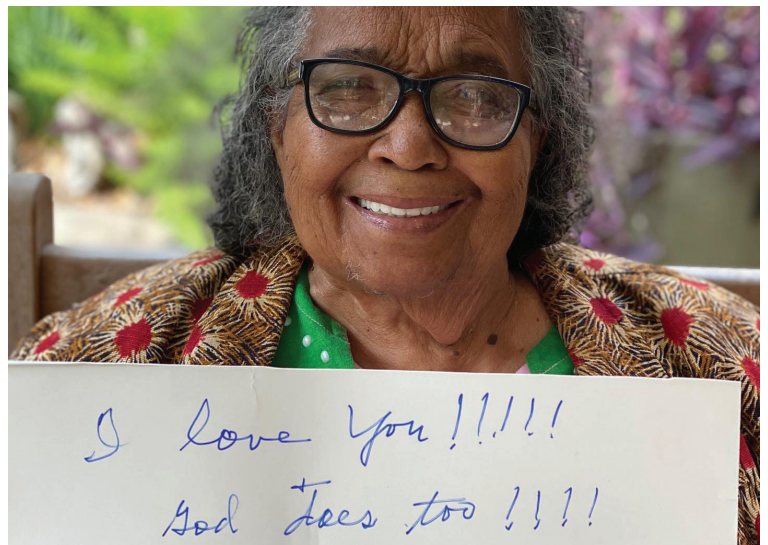 I love You!!!!!
God Does too!!!!